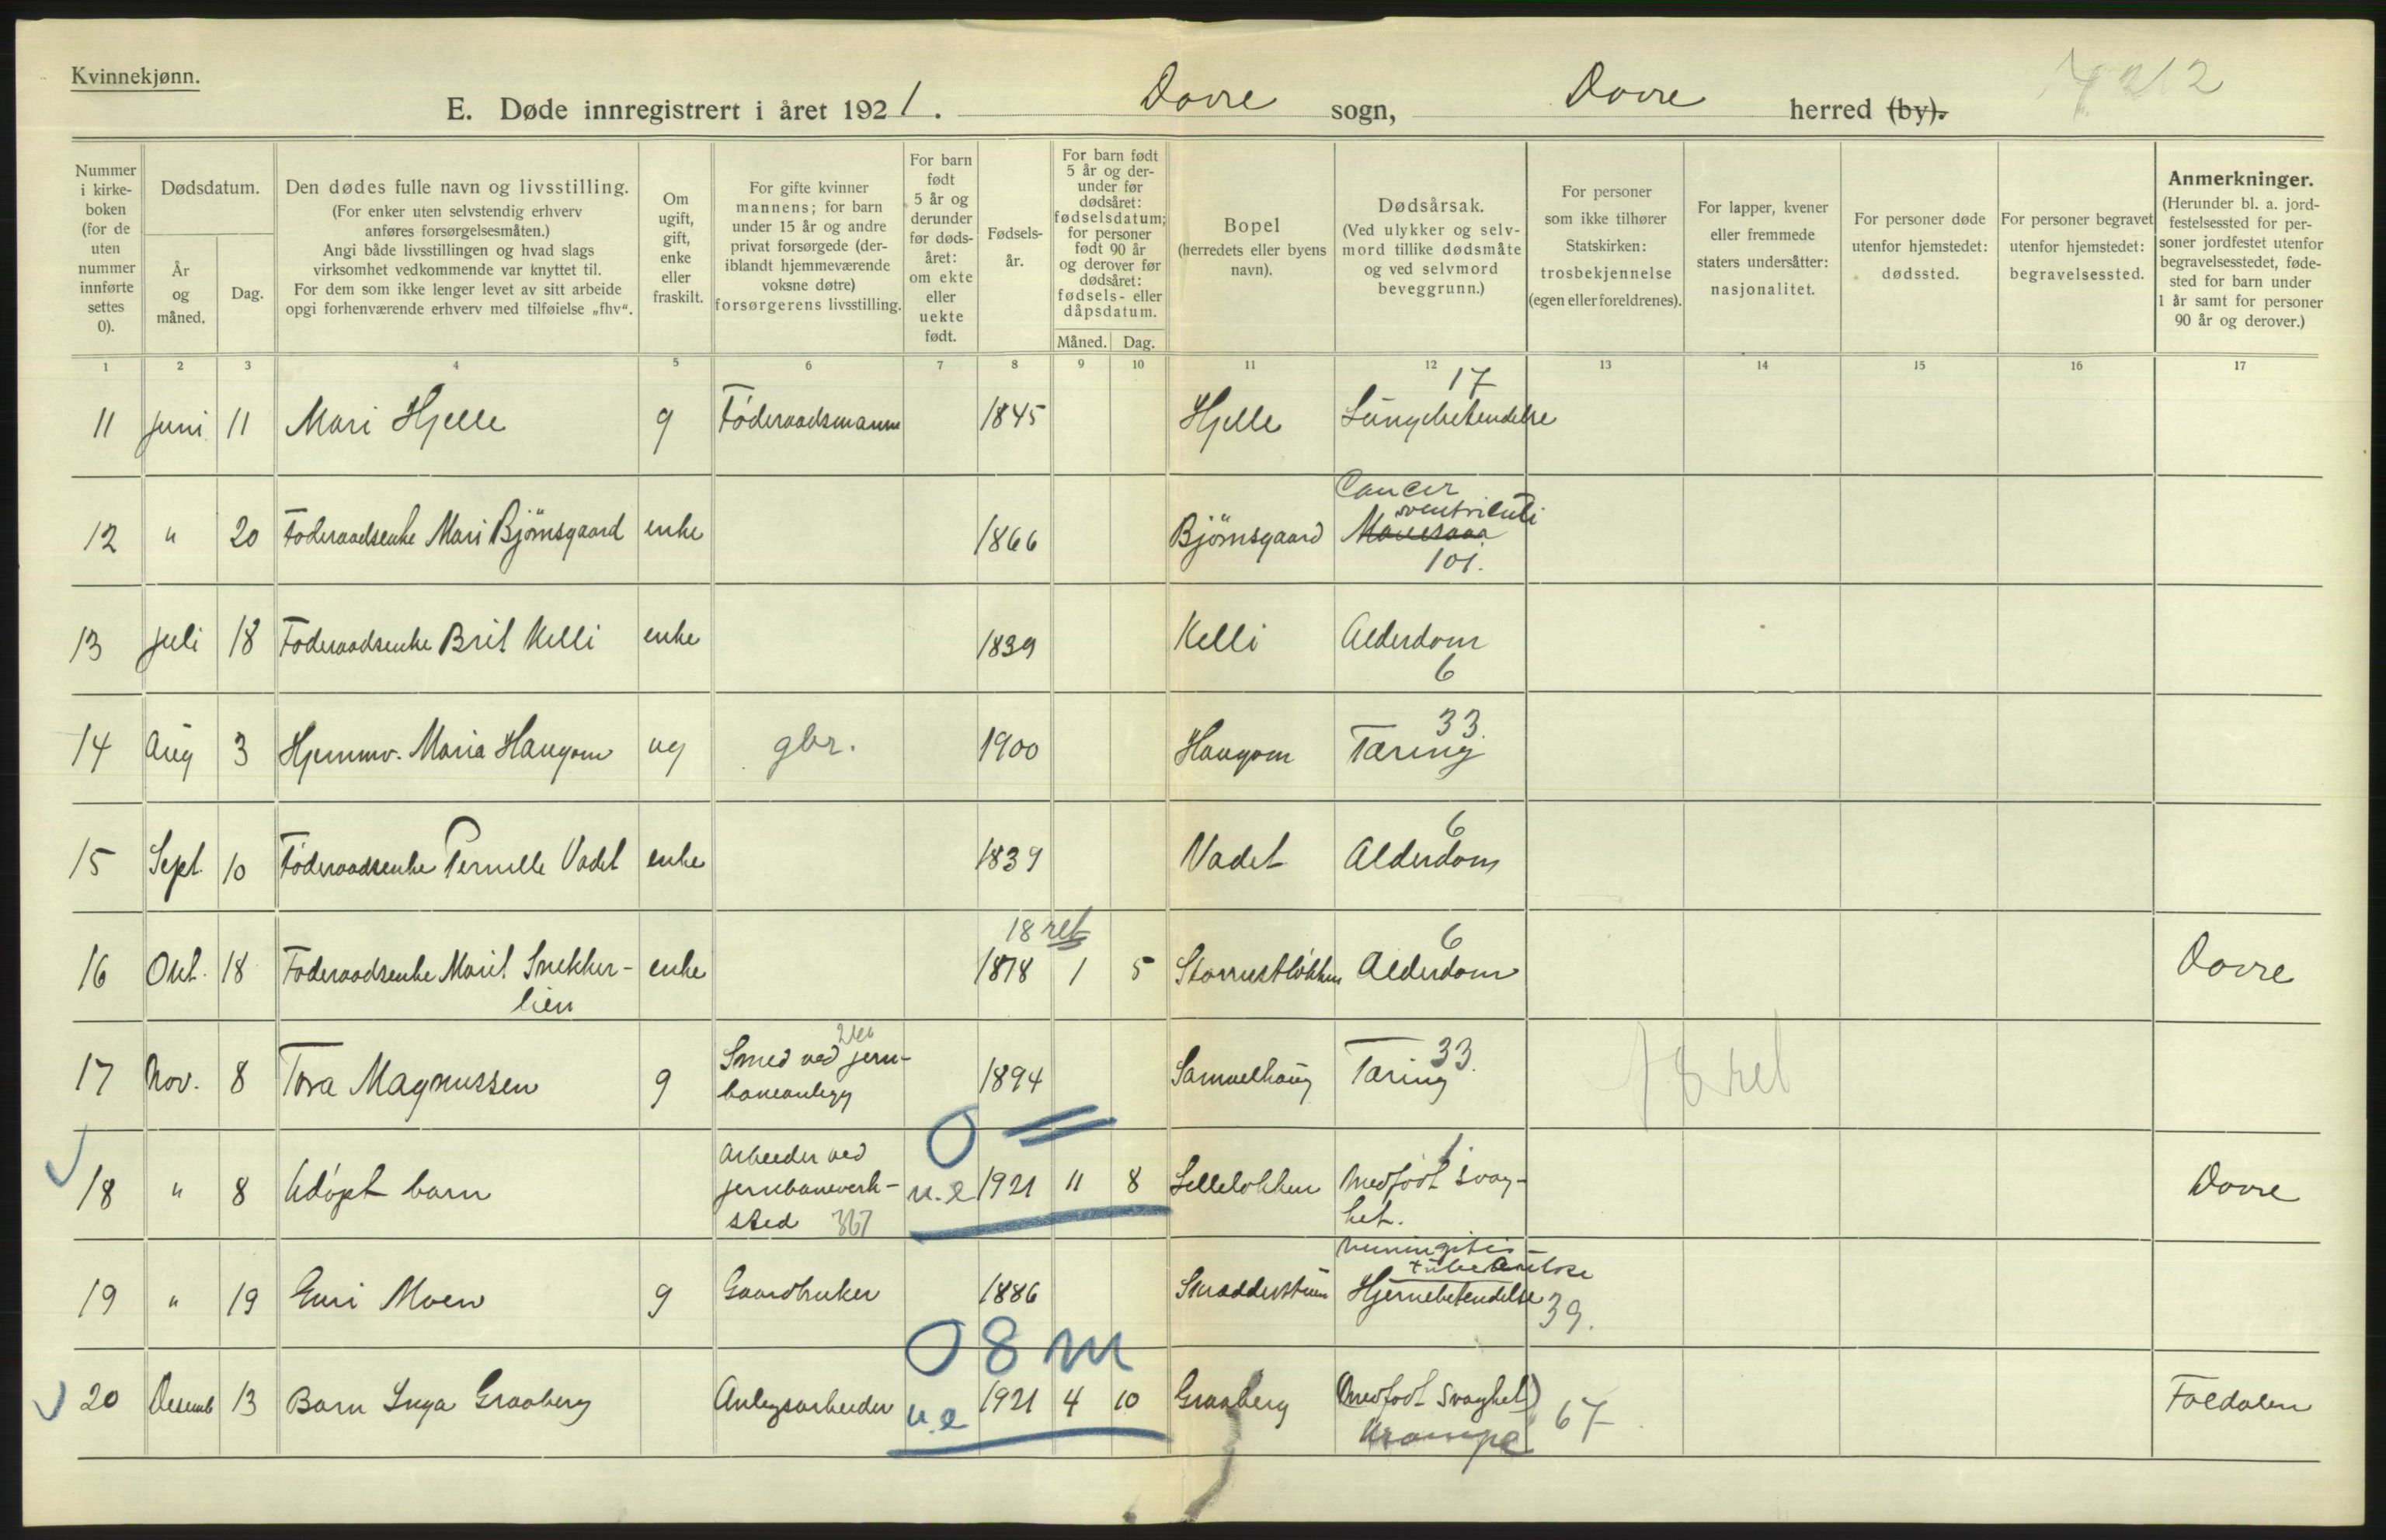 Kvinnekjønn.
E. Døde innregistrert i året 1921. Dovre sogn, Dovre herred (by).
212
Nummer i kirke-boken (for de uten nummer innførte settes 0).
Dødsdatum.
År og måned.
Dag.
Den dødes fulle navn og livsstilling.
(For enker uten selvstendig erhverv anføres forsørgelsesmåten.)
Angi både livsstillingen og hvad slags virksomhet vedkommende var knyttet til.
For dem som ikke lenger levet av sitt arbeide opgi forhenværende erhverv med tilføielse „fhv“.
Om ugift, gift, enke eller fraskilt.
For gifte kvinner mannens; for barn under 15 år og andre privat forsørgede (deriblandt hjemmeværende voksne døtre) forsørgerens livsstilling.
For barn født 5 år og derunder før dødsåret: om ekte eller uekte født.
Fødsels-år.
For barn født 5 år og der-under før dødsåret: fødselsdatum; for personer født 90 år og derover før dødsåret: fødsels- eller dåpsdatum.
Måned. Dag.
Bopel (herredets eller byens navn).
Dødsårsak.
(Ved ulykker og selv-mord tillike dødsmåte og ved selvmord beveggrunn.)
For personer som ikke tilhører Statskirken: trosbekjennelse (egen eller foreldrenes).
For lapper, kvener eller fremmede staters undersåtter: nasjonalitet.
For personer døde utenfor hjemstedet: dødssted.
For personer begravet utenfor hjemstedet: begravelsessted.
Anmerkninger.
(Herunder bl. a. jord-festelsessted for per-soner jordfestet utenfor begravelsesstedet, føde-sted for barn under 1 år samt for personer 90 år og derover.)
1 2 3 4 5 6 7 8 9 10 11 12 13 14 15 16 17
17
11 Juni 11 Mari Hjelle g Föderaadsmann 1845 Hjelle Lungebetendelse
Cancer
ventriculi
12 " 20 Foderaadsenke Mari Bjömsgaard enke 1866 Bjömsgaard
101.
13 Juli 18 Foderaadsenke Brit Kelli enke 1839 Kelli Alderdom
6
33.
14 Aug 3 Hjemmv. Maria Haugom ug gbr. 1900 Haugom Tæring
6
15 Sept. 10 Föderaadsenke Pernille Vadet enke 1839 Vadet Alderdom
18 ret 6
16 Okt. 18 Foderaadsenke Marit Snekker- enke 1818 1 5 Storrustløkken Alderdom Dovre
lien
17 Nov. 8 Tora Magnussen g Smed ved jern- 1894 Samuelhaug Tæring 33.
baneanlegg
18 ret
0
1
18 " 8 Udöpt barn Arbeider ved jernbaneverk- u.e 1921 11 8 Lilleløkken Medfödt svag- Dovre
sted 367 het.
meningitis
tuberculose
19 " 19 Guri Moen g Gaardbruker 1886 Skraddertuen Hjernebetendelse 39.
0 8 m
20 Desemb 13 Barn Inga Graaberg Anlegsarbeider u.e 1921 4 10 Graaberg (Medfödt svaghet) 67 Foldalen
Krampe